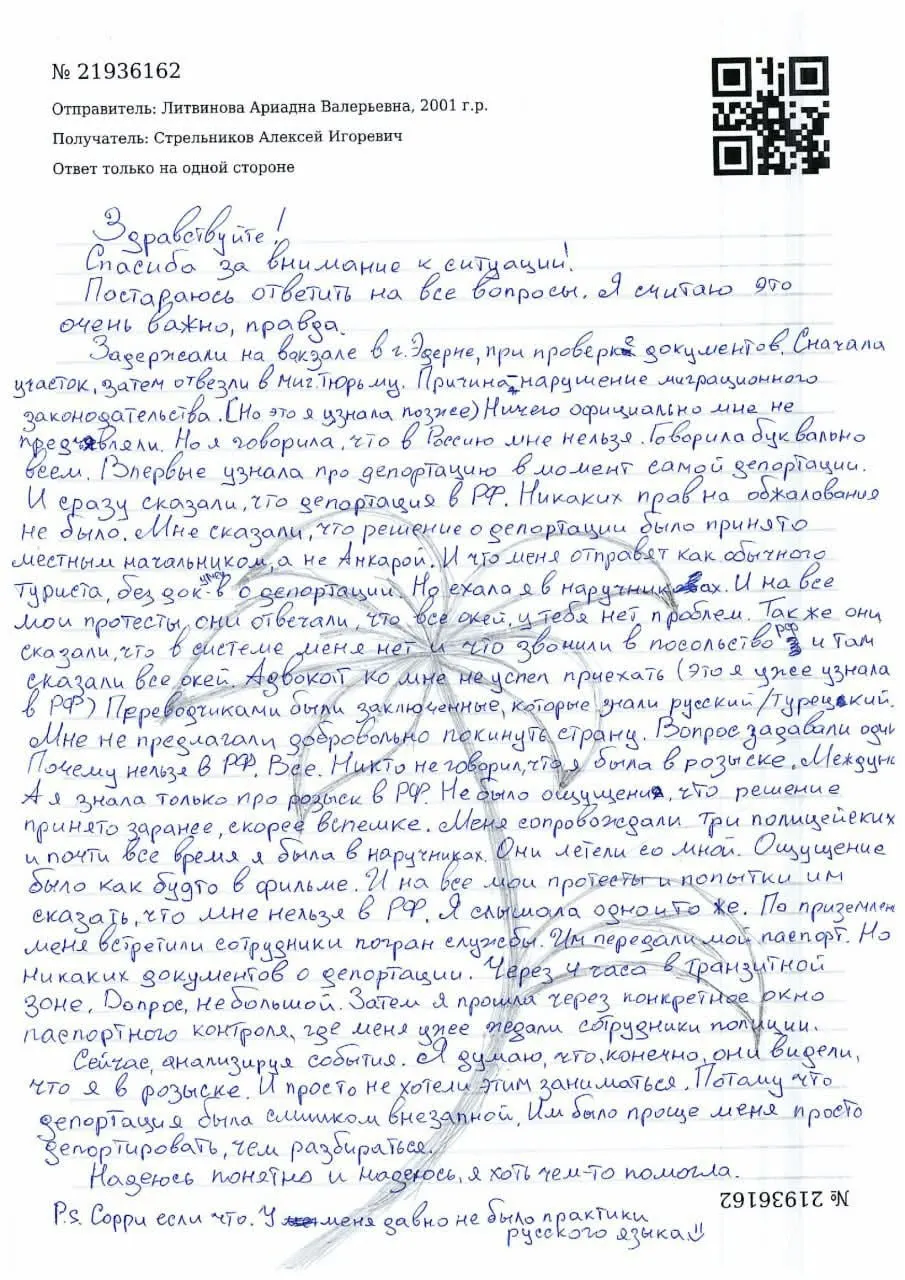 № 21936162
Отправитель: Литвинова Ариадна Валерьевна, 2001 г.р.
Получатель: Стрельников Алексей Игоревич
Ответ только на одной стороне
Здравствуйте!
Спасиба за внимание к ситуации!
Постараюсь ответить на все вопросы. Я считаю это
очень важно, правда.
Задержали на вокзале в г. Эдерне, при проверке документов. Сначала
участок, затем отвезли в миг. тюрьму. Причина - нарушение миграционного
законодательства. (Но это я узнала позже) Ничего официально мне не
предъявляли. Но я говорила, что в Россию мне нельзя. Говорила буквально
всем. Впервые узнала про депортацию в момент самой депортации.
И сразу сказали, что депортация в РФ. Никаких прав на обжалование
не было. Мне сказали, что решение о депортации было принято
местным начальником, а не Анкарой. И что меня отправят как обычного
туриста, без док-в о депортации. Но ехала я в наручниках. И на все
мои протесты, они отвечали, что все окей, у тебя нет проблем. Так же они
сказали, что в системе меня нет и что звонили в посольство РФ и там
сказали все окей. Адвокат ко мне не успел приехать (это я уже узнала
в РФ) Переводчиками были заключенные, которые знали русский/турецкий.
Мне не предлагали добровольно покинуть страну. Вопрос задавали один
Почему нельзя в РФ. Все. Никто не говорил, что я была в розыске. Междун
А я знала только про розыск в РФ. Не было ощущения, что решение
принято заранее, скорее вспешке. Меня сопровождали три полицейских
и почти все время я была в наручниках. Они летели со мной. Ощущение
было как будто в фильме. И на все мои протесты и попытки им
сказать, что мне нельзя в РФ. Я слышала одно и то же. По приземлен
меня встретили сотрудники погран службы. Им передали мой паспорт. Но
никаких документов о депортации. Через 4 часа в транзитной
зоне. Допрос, небольшой. Затем я прошла через конкретное окно
паспортного контроля, где меня уже ждали сотрудники полиции.
Сейчас, анализируя события. Я думаю, что, конечно, они видели,
что я в розыске. И просто не хотели этим заниматься. Потому что
депортация была слишком внезапной. Им было проще меня просто
депортировать, чем разбираться.
Надеюсь понятно и надеюсь, я хоть чем-то помогла.
№ 21936162
P.s. Сорри если что. У меня давно не было практики
русского языка